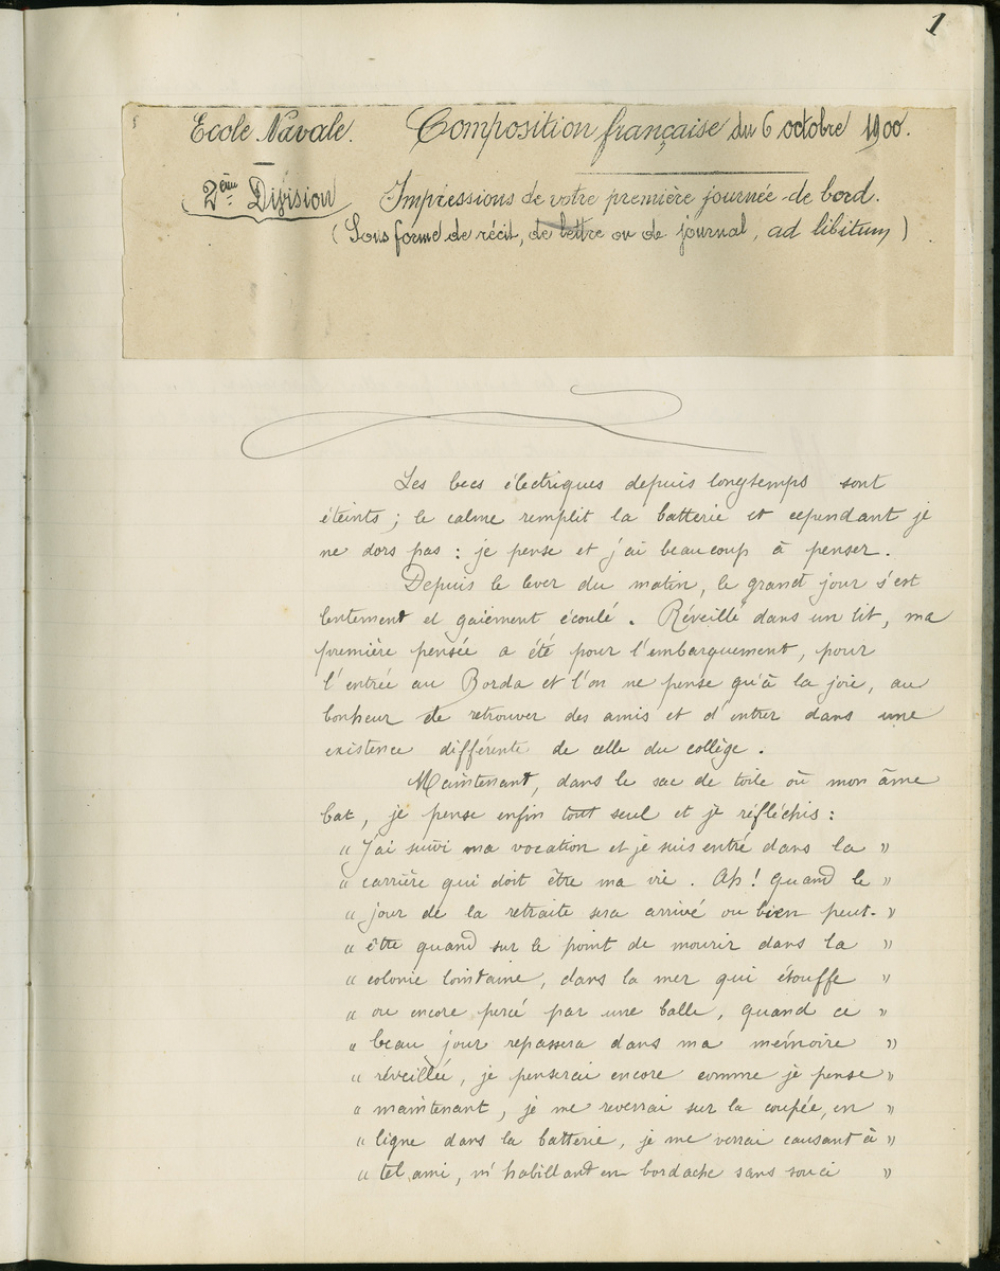 1
Ecole Navale. Composition française du 6 octobre 1900.
2ème Division Impressions de votre première journée de bord.
(Sous forme de récit, de lettre ou de journal, ad libitum)
Les becs électriques depuis longtemps sont
éteints ; le calme remplit la batterie et cependant je
ne dors pas : je pense et j'ai beaucoup à penser.
Depuis le lever du matin, le grand jour s'est
lentement et gaiement écoulé. Réveillé dans un lit, ma
première pensée a été pour l'embarquement, pour
l'entrée au Borda et l'on ne pense qu'à la joie, au
bonheur de retrouver des amis et d'entrer dans une
existence différente de celle du collège.
Maintenant, dans le sac de toile où mon âme
bat, je pense enfin tout seul et je réfléchis :
" J'ai suivi ma vocation et je suis entré dans la "
" carrière qui doit être ma vie. Ah ! quand le "
" jour de la retraite sera arrivé ou bien peut- "
" être quand sur le point de mourir dans la "
" colonie lointaine, dans la mer qui étouffe "
" ou encore percé par une balle, quand ce "
" beau jour repassera dans ma mémoire "
" réveillée, je penserai encore comme je pense "
" maintenant, je me reverrai sur la coupée, en "
" ligne dans la batterie, je me verrai causant à "
" tel ami, m'habillant en bordache sans souci "